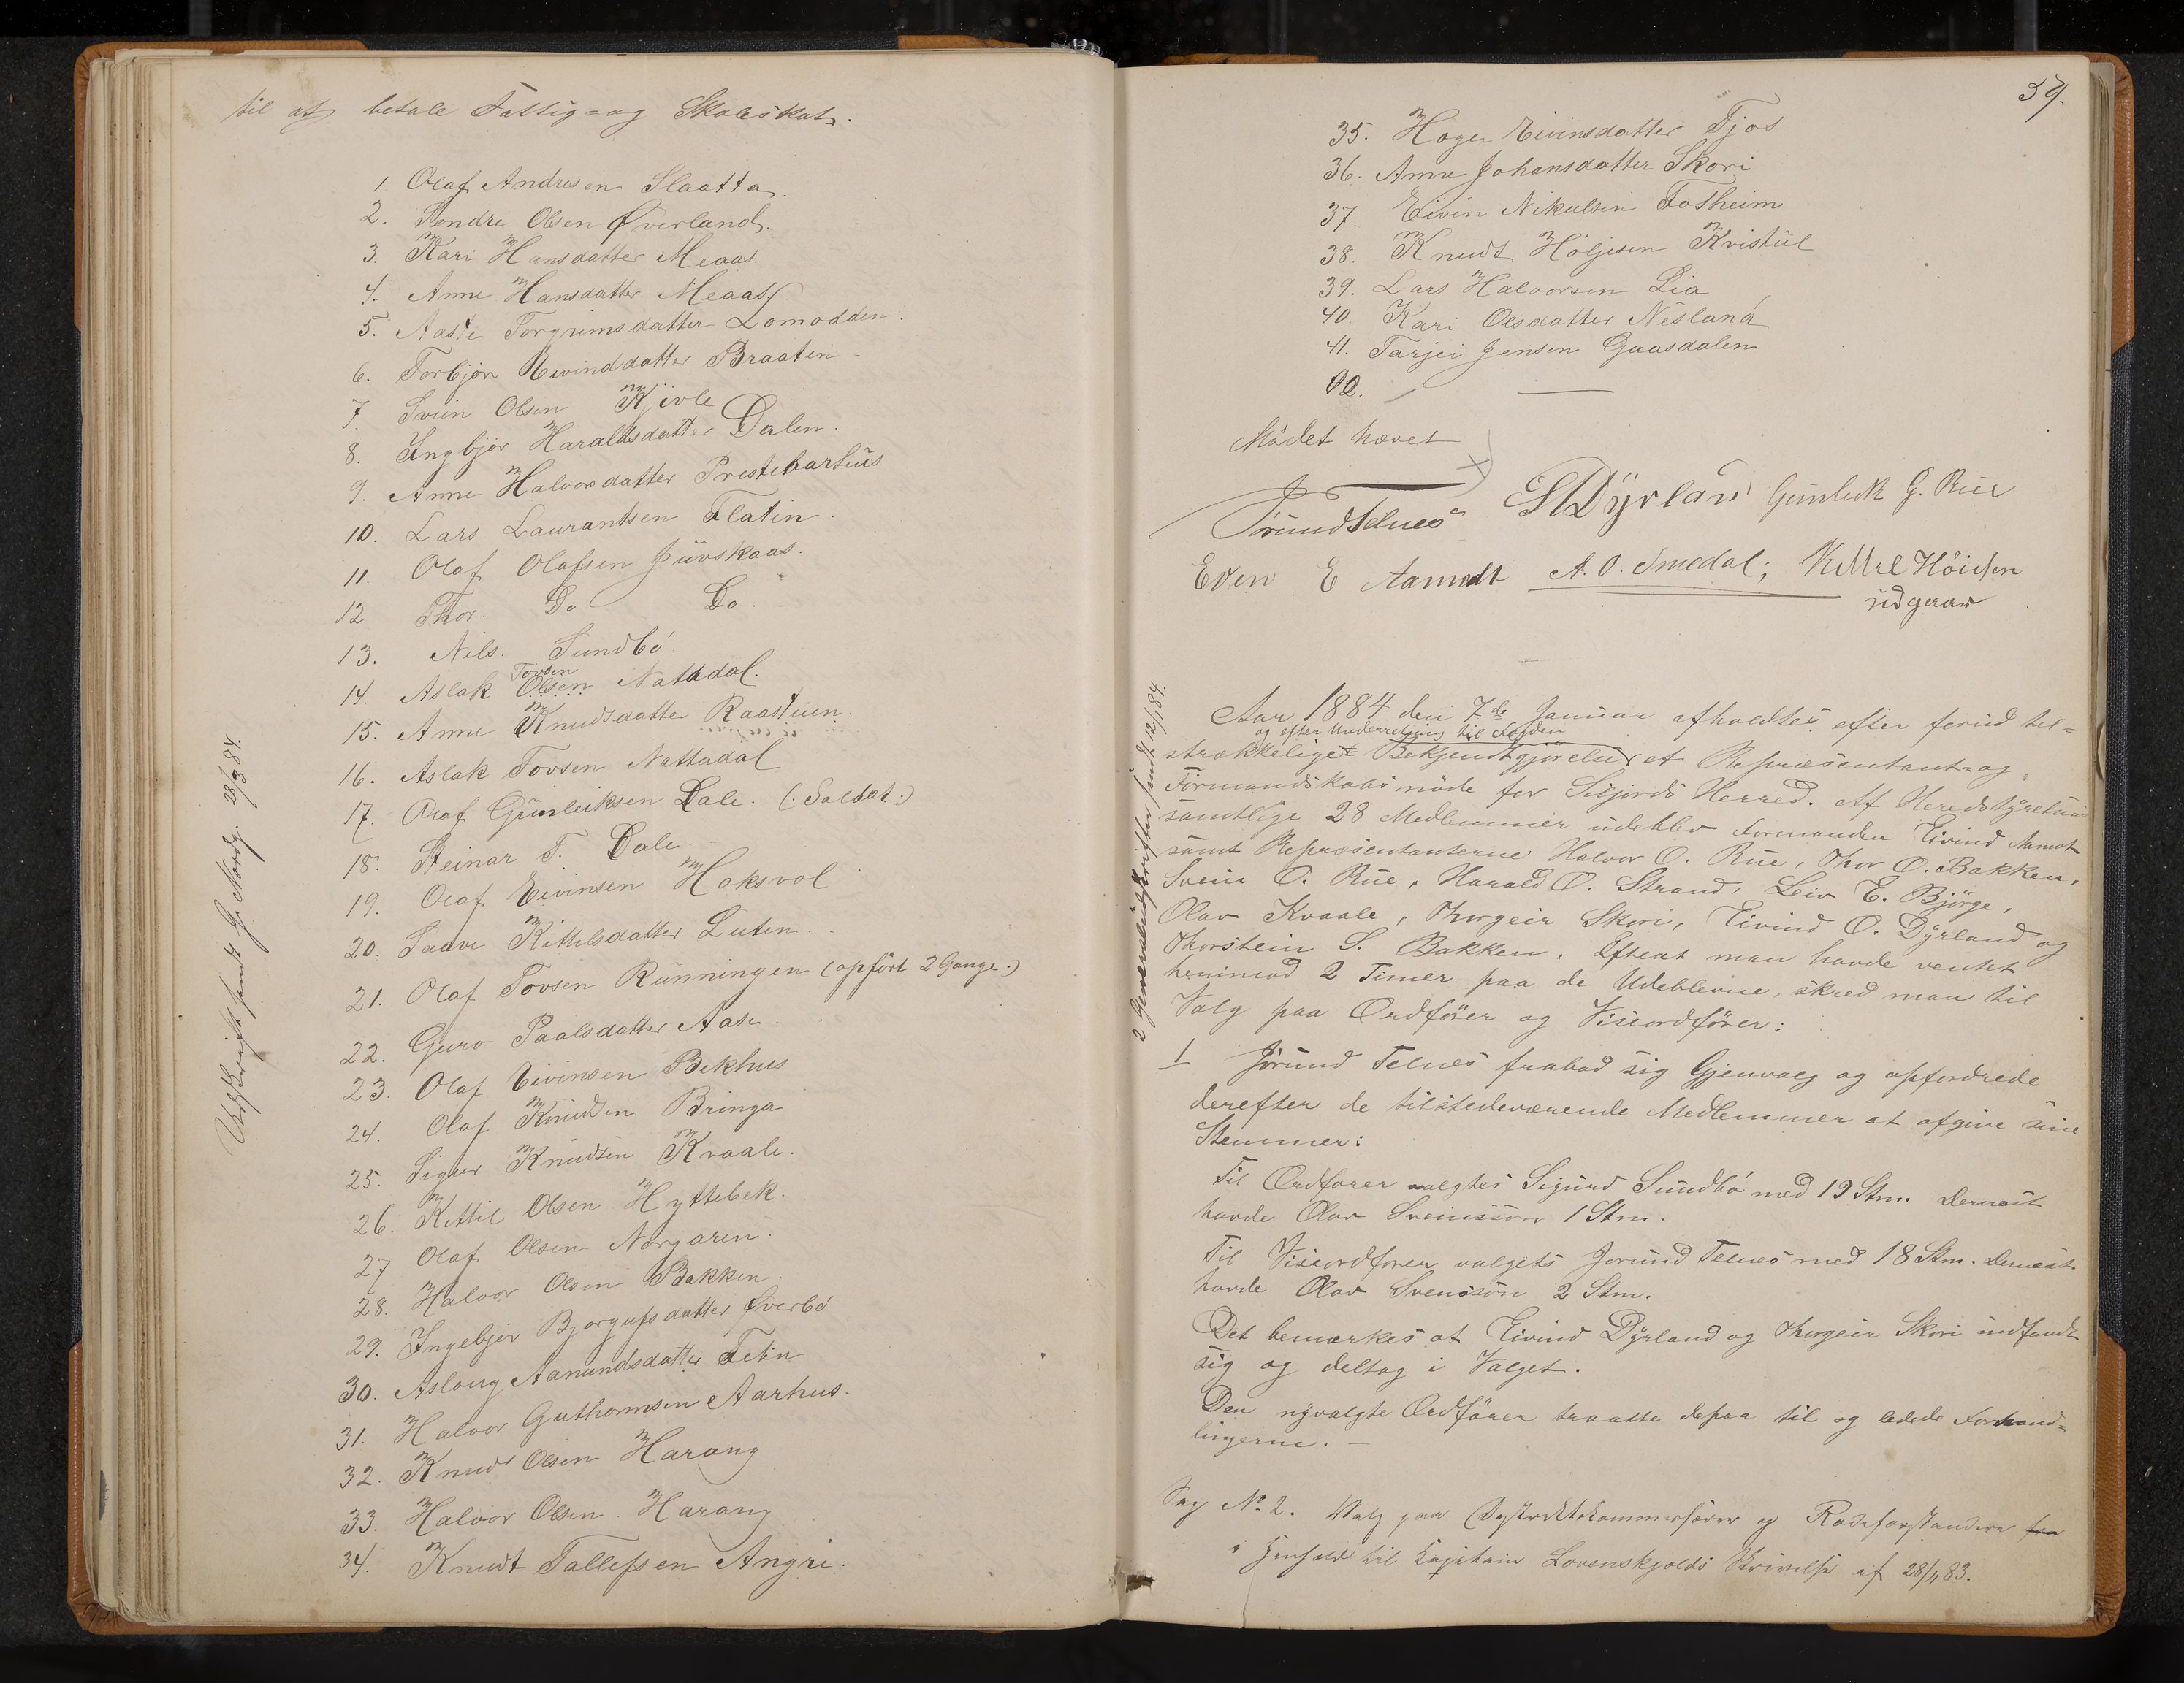 til at betale Fattig- og Skoleskat.
1. Olaf Andresen Slaatta.
2. Sendre Olsen Øverland.
3. Kari Hansdatter Meaas.
4. Anne Hansdatter Meaas
5. Aaste Torgrimsdatter Lomodden.
6. Torbjør Eivindsdatter Braaten
7. Svein Olsen Kjivle
8. Ingbjør Haraldsdatter Dalen.
9. Anne Halvorsdatter Prestebarhus
10. Lars Laurantsen Flatin.
11. Olaf Olafsen Juvskaas.
12 Thor. Do Do.
13. Nils. Sundbö.
Tovsen
14. Aslak Olsen Nattadal.
15. Anne Knudsdatter Raastuen.
16. Aslak Tovsen Nattadal
17. Olaf Gunleiksen Dale. (: Saldat:)
18. Steinar T. Dale.
19. Olaf Eivinsen Haksvol
20. Saave Kittelsdatter Luten.
21. Olaf Tovsen Rünningen (opført 2 Gange.)
22. Guro Paalsdatter Aase.
23. Olaf Eivinsen Bekhus
24. Olaf Knudsen Bringa
25. Sigur Knudsen Kvaale.
26. Kittil Olsen Hyttebek.
27 Olaf Olsen Norgaren.
28. Halvor Olsen Bakken.
29. Ingebjør Bjorgufsdatter Øverbö
30. Aslaug Aanundsdatter Tetin
31. Halvor Guthormsen Aarhus.
32. Knud Olsen Harang
33. Halvor Olsen Harang
34. Knudt Tallefsen Angri.
Udskrift sendt G. Nordg. 28/3 84.
39.
35. Hoge Eivinsdatter Fjos
36. Anne Johansdatter Skori
37 Eivin Nikulsen Fosheim
38. Knudt Höljesen Kvistül
39. Lars Halvorsen Lia
40. Kari Olsdatter Nesland
41. Tarjei Jensen Gaasdalen
Mödet hævet
Jörund Telnes SADyrlan Gunleik G. Rue
Even E Aamodt A. O. Smedal; Kittel Höiesen
udgaar
2 Generaludskrifter sendt 12/1 84.
Aar 1884 den 7de Januar afholdtes efter forud til-
og efter Underretning til Fogden
strækkeliget Bekjendtgjörelse et Repræsentant- og
Formandskabsmöde for Siljords Herred. Af Heredstyrets
samtlige 28 Medlemmer udeblev Formanden Eivind Aamot
samt Repræsentanterne Halvor O. Rue, Thor O. Bakken,
Svein O. Rue, Harald O. Strand, Leiv E. Björge,
Olav Kvaale, Thorgeir Skori, Eivind O. Dyrland og
Thorstein S. Bakken. Efterat man havde ventet
henimod 2 Timer paa de Udeblevne, skred man til
Valg paa Ordförer og Viseordförer:
1 Jörund Telnes frabad sig Gjenvalg og opfordrede
derefter de tilstedeværende Medlemmer at afgive sine
Stemmer:
Til Ordförer valgtes Sigurd Sundbö med 19 Stm. Dernæst
havde Olav Sveinsson 1 Stm.
Til Viseordförer valgtes Jorund Telnes med 18 Stm. Dernæst
havde Olav Svensson 2 Stm.
Det bemærkes at Eivind Dyrland og Thorgeir Skori indfandt
sig og deltog i Valget.
Den nyvalgte Ordförer traatte depaa til og ledede Forhand-
lingerne.
Sag No 2. Valg paa Distriktskommerförer og Rodeforstandere fra
i Henhold til Kapitain Lovenskjolds Skrivelse af 28/11 83.